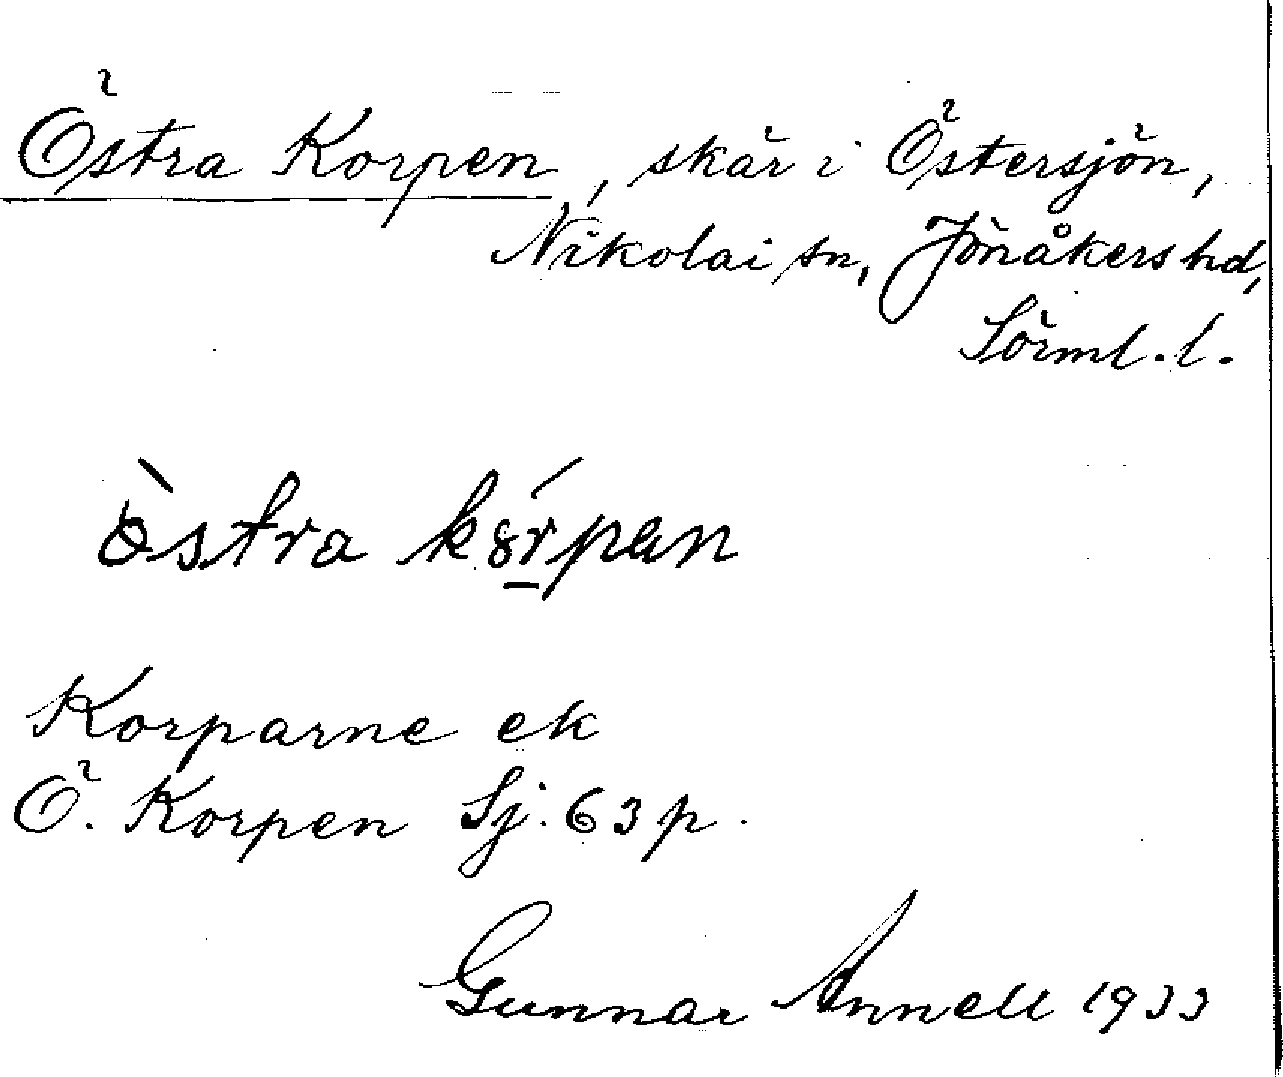 Östra Korpen, skär i Östersjön,
Nikolai sn, Jönåkers hd,
Sörml. l.
östra kȣ́rpan
Korparne ek
Ö. Korpen Sj. 63 p.
Gunnar Annell 1933